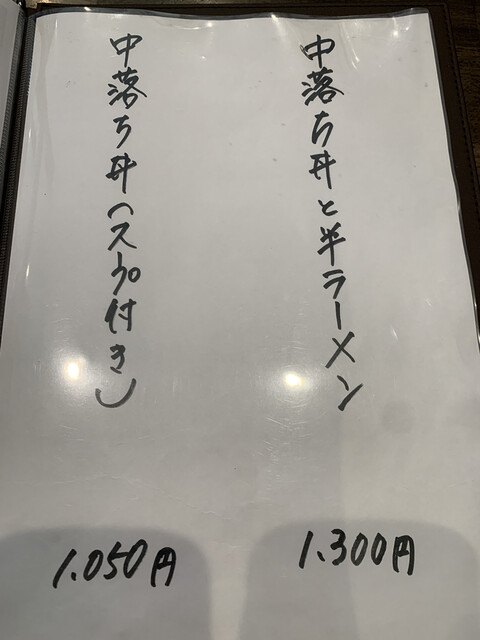 中落ち丼と半ラーメン
1.300円
中落ち丼(スープ付き)
1.050円